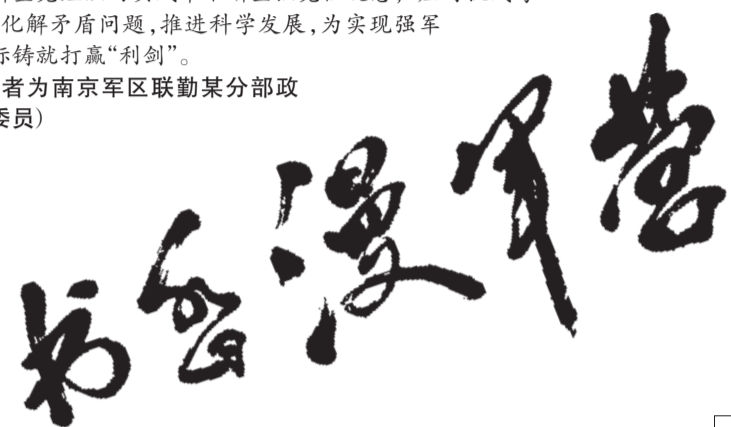 化解矛盾问题,推进科学发展,为实现强军
标铸就打赢“利剑”。
者为南京军区联勤某分部政
委员)
书香漫军营